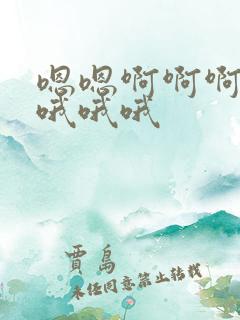 嗯嗯啊啊啊
哦哦哦
賈島
未经同意禁止转载